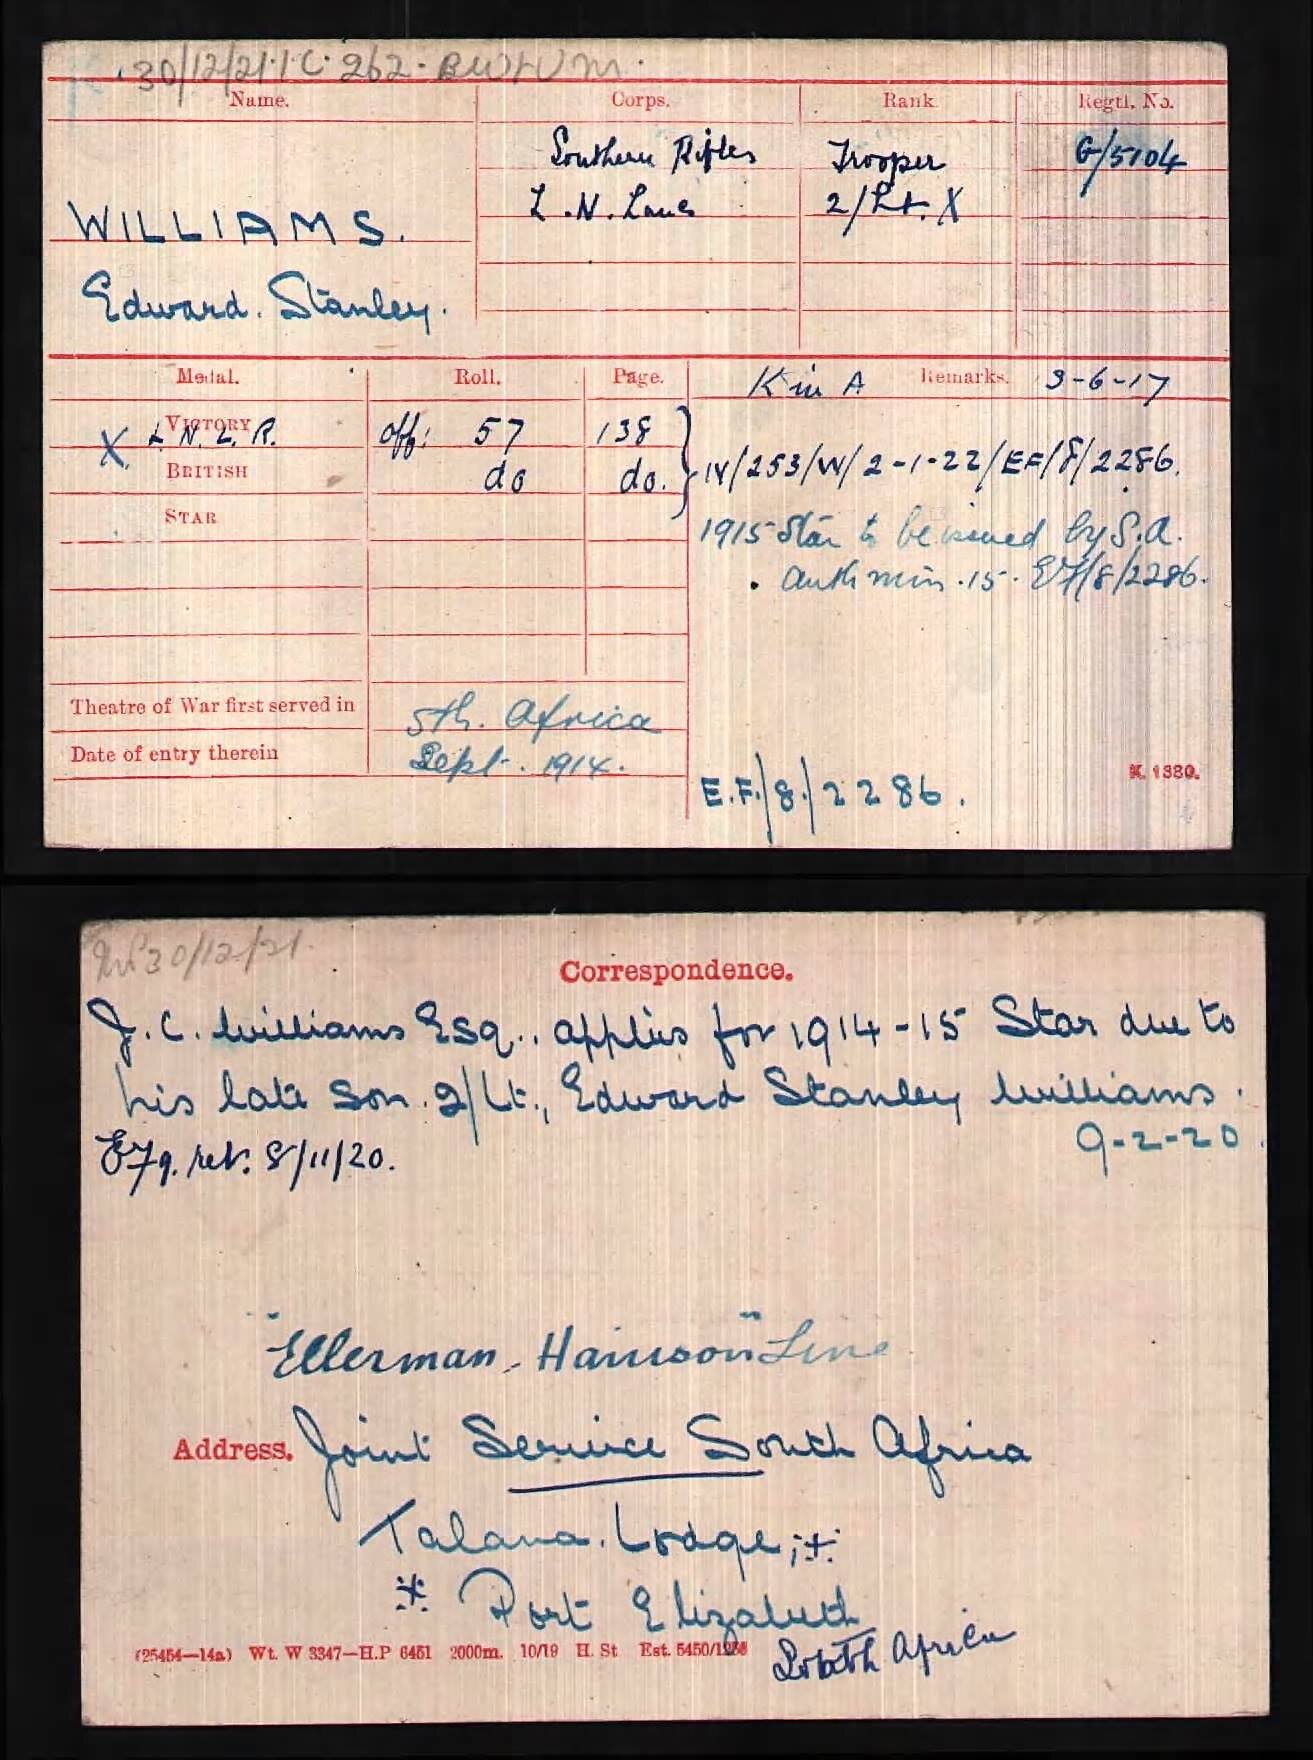 30/12/21. I.C. 262. BW & VM.
Name. Corps. Rank Regtl. No.
Southern Rifles Trooper G/5104
WILLIAMS. L.N. Lancs 2/Lt. X
Edward. Stanley.
Medal. Roll. Page. K in A Remarks. 3-6-17
VICTORY
X L.N.L.R. Off: 57 138
BRITISH do do. IV/253/W/2-1-22/EF/8/2286.
STAR
1915 Star to be issued by S.A.
. Auth min. 15. EF/8/2286.
Theatre of War first served in Sth. Africa
Date of entry therein Sept. 1914.
E.F./8./2286.
K. 1380.
30/12/21.
Correspondence.
J. C. Williams Esq., applies for 1914-15 Star due to
his late son. 2/Lt., Edward Stanley Williams.
9-2-20.
EF9. ret. 8/11/20.
"Ellerman, Harrison" Line
Address. Joint Service South Africa
Talana. Lodge;
Port Elizabeth
South Africa
(25454—14a) Wt. W 3347—H.P 6451 2000m. 10/19 H. St Est. 5450/1256